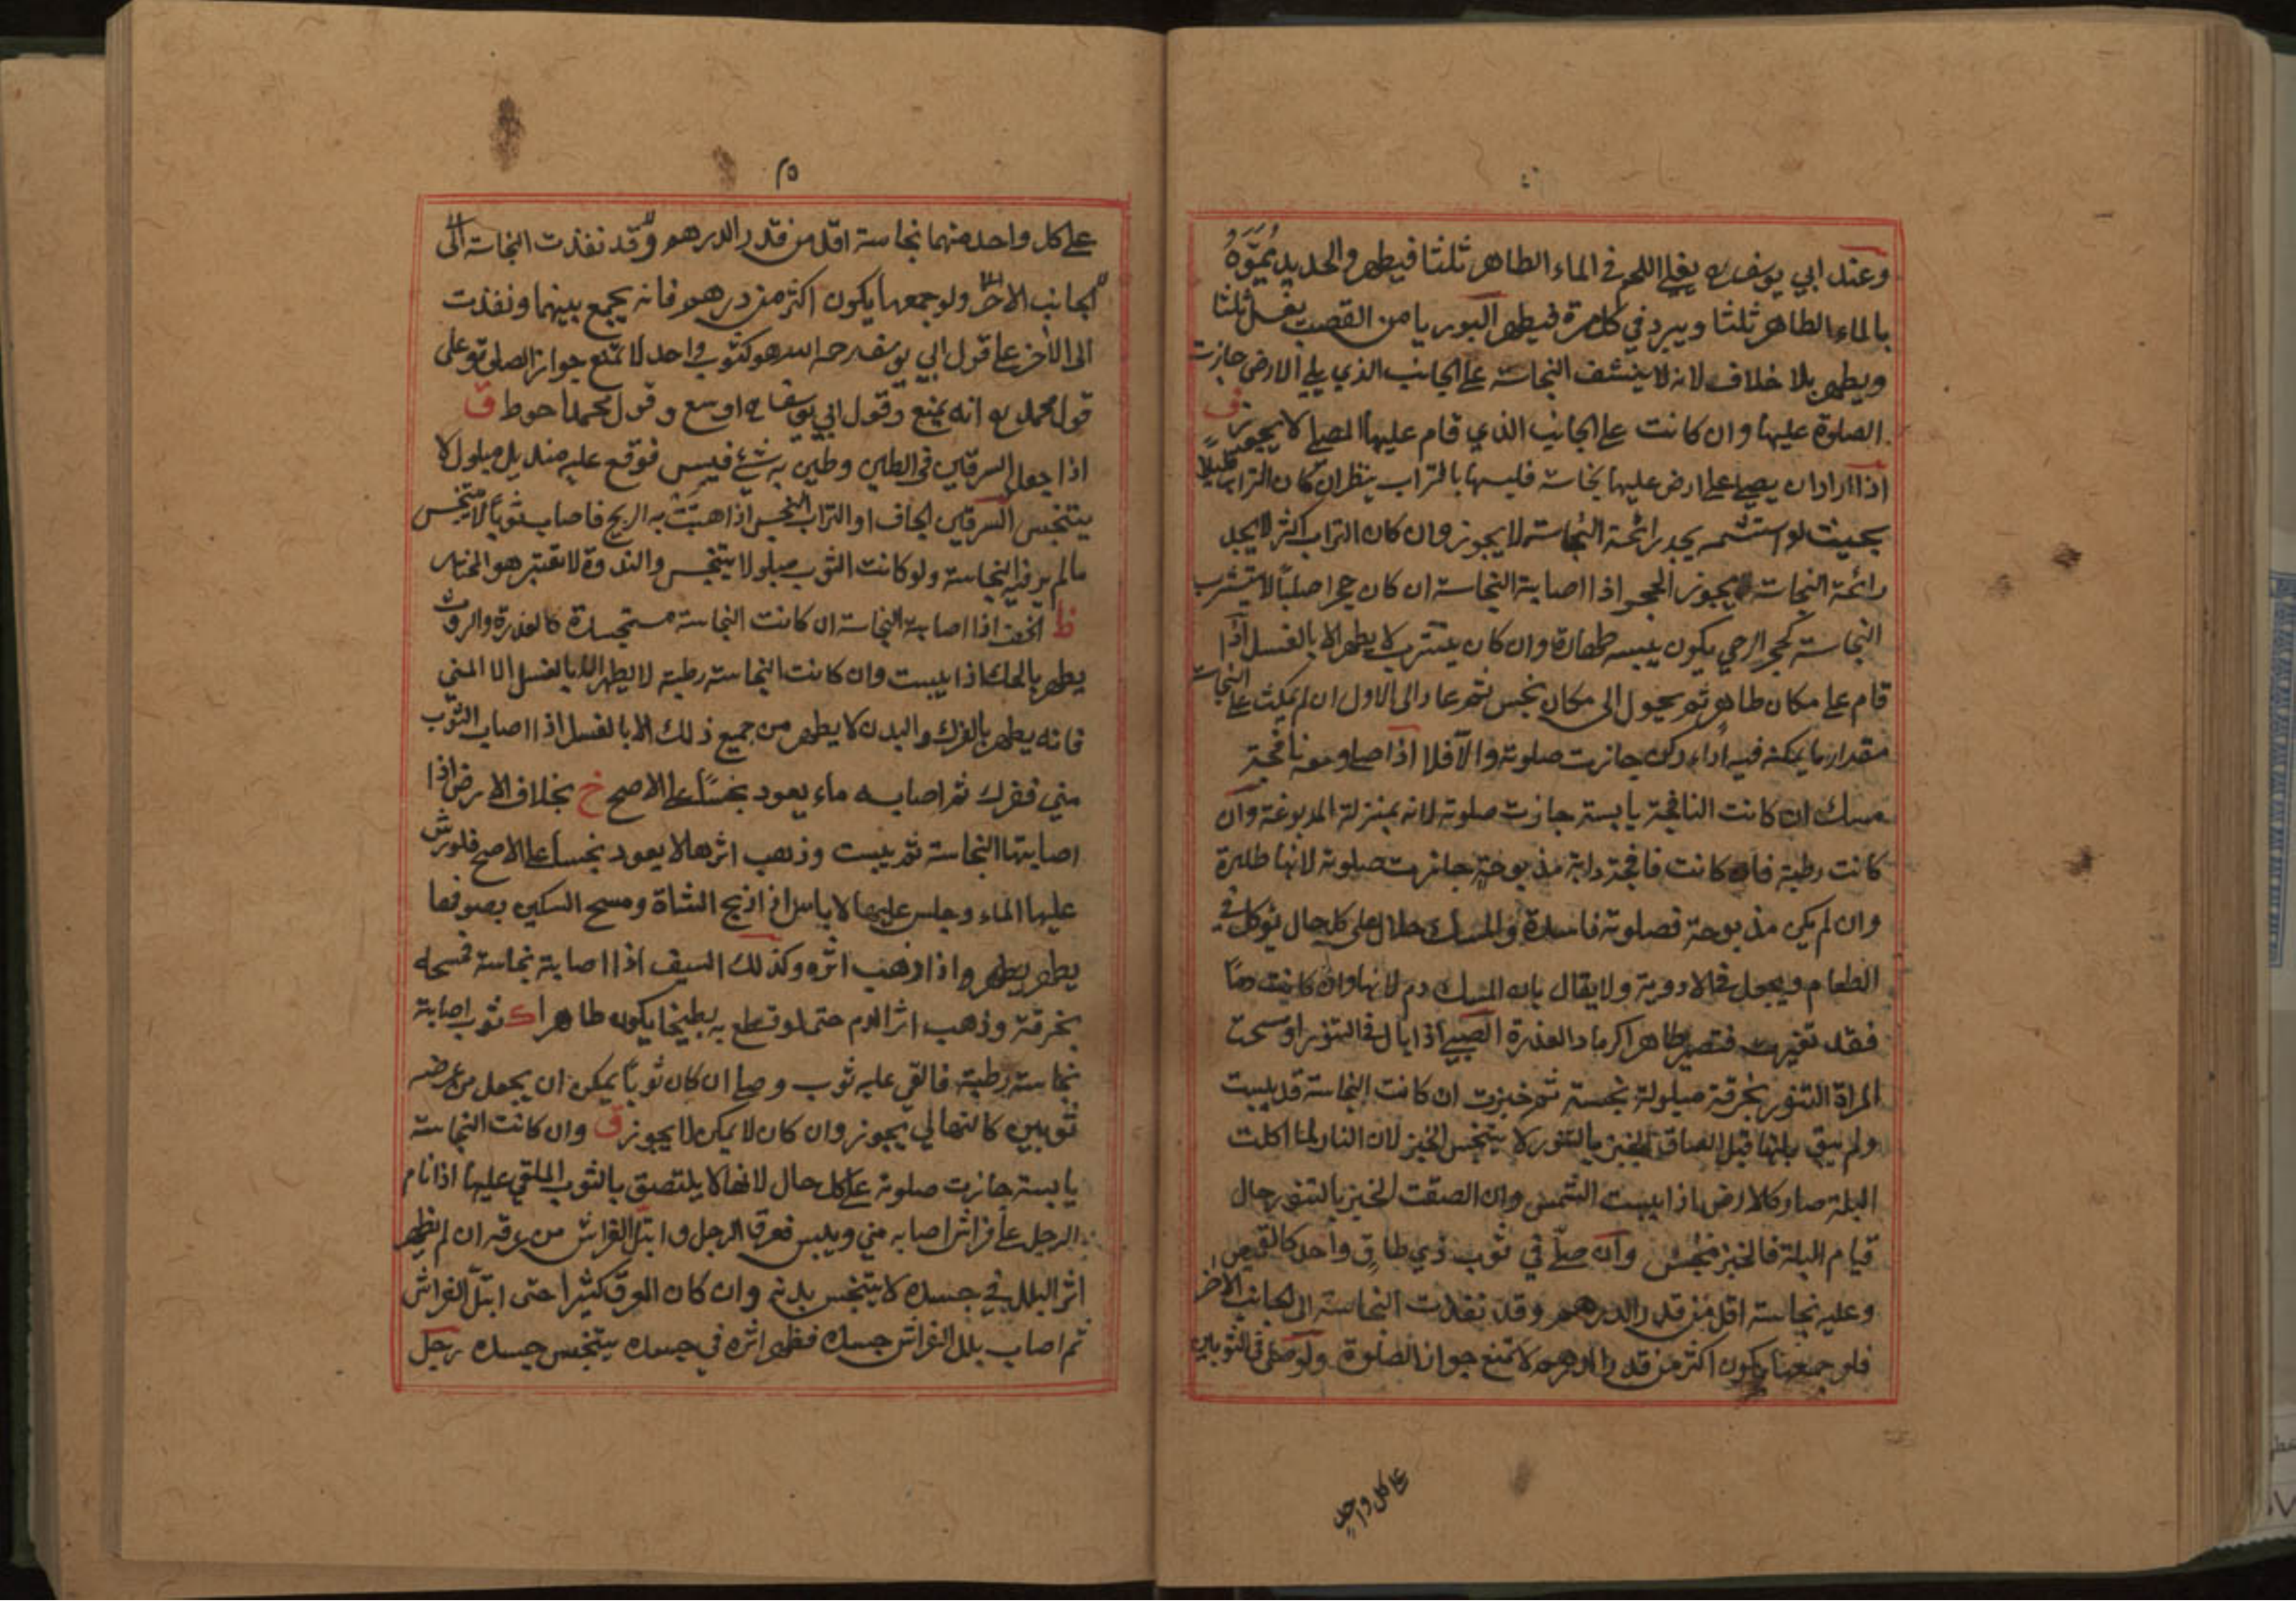 وعند ابي يوسف رح يغلي اللحم في الماء الطاهر ثلثا فيطهر والحديد يُمَوَّهُ
بالماء الطاهر ثلثا ويبرد في كل مرة فيطهر البوريا من القصب يغسل ثلثا
ويطهر بلا خلاف لانه لا ينشف النجاسة على الجانب الذي يلي الارض جازت
الصلوة عليها وان كانت على الجانب الذي قام عليها المصلي لا يجوز ق
اذا اراد ان يصلي على ارض عليها نجاسة فلبسها بالتراب ينظر ان كان التراب قليلا
بحيث لو استشمه يجد رائحة النجاسة لا يجوز وان كان التراب اكثر لا يجد
رائحة النجاسة يجوز الحجر اذا اصابته النجاسة ان كان حجرا صلبا لا يتشرب
النجاسة كحجر الرحي يكون يبسه طهارة وان كان يتشرب لا يطهر الا بالغسل اذا
قام على مكان طاهر ثم يحول الى مكان نجس ثم عاد الى الاول ان لم يمكث على النجاسة
مقدار ما يمكنه فيه اداء ركن جازت صلوته والا فلا اذا صلى ومعه نافجة
مسك ان كانت النافجة يابسة جازت صلوته لانه بمنزلة المدبوغة وان
كانت رطبة فان كانت فافجة دابة مذبوحة جازت صلوته لانها طاهرة
وان لم يكن مذبوحة فصلوته فاسدة والمسك حلال على كل حال يؤكل في
الطعام ويجعل في الادوية ولا يقال بان المسك دم لانها وان كانت دما
فقد تغيرت فتصير طاهرا كرماد العذرة الصبي اذا بال في التنور او مسحت
المراة التنور بخرقة مبلولة نجسة ثم خبزت ان كانت النجاسة قد يبست
ولم يبق بلتها قبل الصاق الخبز بالتنور لا يتنجس الخبز لان النار لما اكلت
البلة صار كالارض اذا يبست الشمس وان الصقت الخبز بالتنور حال
قيام البلة فالخبز نجس وان صلى في ثوب ذي طاق واحد كالقميص
وعليه نجاسة اقل من قدر الدرهم وقد نفذت النجاسة الى الجانب الاخر
فلو جمعها يكون اكثر من قدر الدرهم لا تمنع جواز الصلوة ولو صلى في الثوبين
على كل واحد
٢٥
على كل واحد منهما نجاسة اقل من قدر الدرهم وقد نفذت النجاسة الى
الجانب الاخر ولو جمعها يكون اكثر من درهم فانه يجمع بينهما ونفذت
الى الاخر على قول ابي يوسف رحمه الله هو كثوب واحد لا تمنع جواز الصلوة وعلى
قول محمد رح انه يمنع وقول ابي يوسف رح اوسع وقول محمد احوط ق
اذا جعل السرقين في الطين وطين به شئ فيبس فوقع عليه منديل مبلول لا
يتنجس السرقين الجاف او التراب النجس اذا هبت به الريح فاصاب ثوبا لا يتنجس
مالم ير فيه النجاسة ولو كانت الثوب مبلولا يتنجس والندوة لا تعتبر هو المختار
ظ الخف اذا اصابته النجاسة ان كانت النجاسة مستجسدة كالعذرة والروث
يطهر بالحك اذا يبست وان كانت النجاسة رطبة لا يطهر الا بالغسل الا المني
فانه يطهر بالفرك والبدن لا يطهر من جميع ذلك الا بالغسل اذا اصاب الثوب
مني ففرك ثم اصابه ماء يعود نجسا على الاصح خ بخلاف الارض اذا
اصابتها النجاسة ثم يبست وذهب اثرها لا يعود نجسا على الاصح فلو رش
عليها الماء وجلس عليها لا باس اذا ذبح الشاة ومسح السكين بصوفها
يطهر يطهر واذا ذهب اثره وكذلك السيف اذا اصابته نجاسة فمسحه
بخرقة وذهب اثر الدم حتى لو قطع به بطيخا يكون طاهرا ك ثوب اصابته
نجاسة رطبة فالقي عليه ثوب وصلى ان كان ثوبا يمكن ان يجعل من عرضه
ثوبين كالنهالي يجوز وان كان لا يمكن لا يجوز ق وان كانت النجاسة
يابسة جازت صلوته على كل حال لانها لا يلتصق بالثوب الملقي عليها اذا نام
الرجل على فراش اصابه مني ويبس فعرق الرجل وابتل الفراش من عرقه ان لم يظهر
اثر البلل في جسده لا يتنجس بدنه وان كان العرق كثيرا حتى ابتل الفراش
ثم اصاب بلل الفراش جسده فظهر اثره في جسده يتنجس جسده رجل